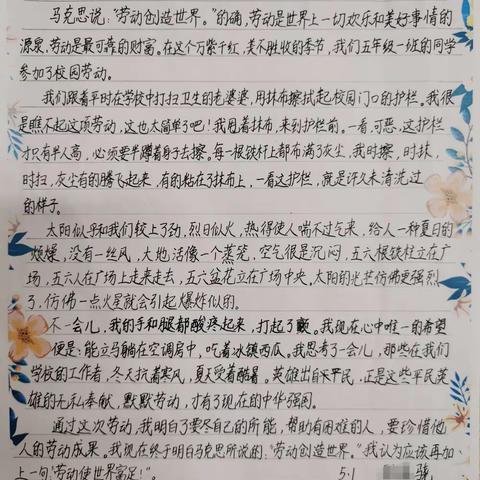 马克思说："劳动创造世界。"的确,劳动是世界上一切欢乐和美好事情的
源泉,劳动是最可靠的财富。在这个万紫千红,美不胜收的季节,我们五年级一班的同学
参加了校园劳动。
我们跟着平时在学校中打扫卫生的老婆婆,用抹布擦拭起校园门口的护栏。我很
是瞧不起这项劳动,这也太简单了吧!我甩着抹布,来到护栏前。一看,可恶,这护栏
才只有半人高,必须要半蹲着身子去擦。每一根铁杆上都布满了灰尘,我时擦,时抹,
时扫,灰尘有的腾飞起来,有的粘在了抹布上,一看这护栏,就是许久未清洗过
的样子。
太阳似乎和我们较上了劲,烈日似火,热得使人喘不过气来,给人一种夏日的
烦燥,没有一丝风,大地活像一个蒸笼,空气很是沉闷,五六根铁柱立在广
场,五六人在广场上走来走去,五六盆花立在广场中央,太阳的光芒仿佛更强烈
了,仿佛一点火星就会引起爆炸似的。
不一会儿,我的手和腿都酸疼起来,打起了颤。我现在心中唯一的希望
便是:能立马躺在空调房中,吃着冰镇西瓜。我思考了一会儿,那些在我们
学校的工作者,冬天抗着寒风,夏天受着酷暑。英雄出自平民,正是这些平民英
雄的无私奉献,默默劳动,才有了现在的中华强国。
通过这次劳动,我明白了要尽自己的所能,帮助有困难的人,要珍惜他
人的劳动成果。我现在终于明白马克思所说的:"劳动创造世界。"我认为应该再加
上一句"劳动使世界富足!"。
5.1 骁